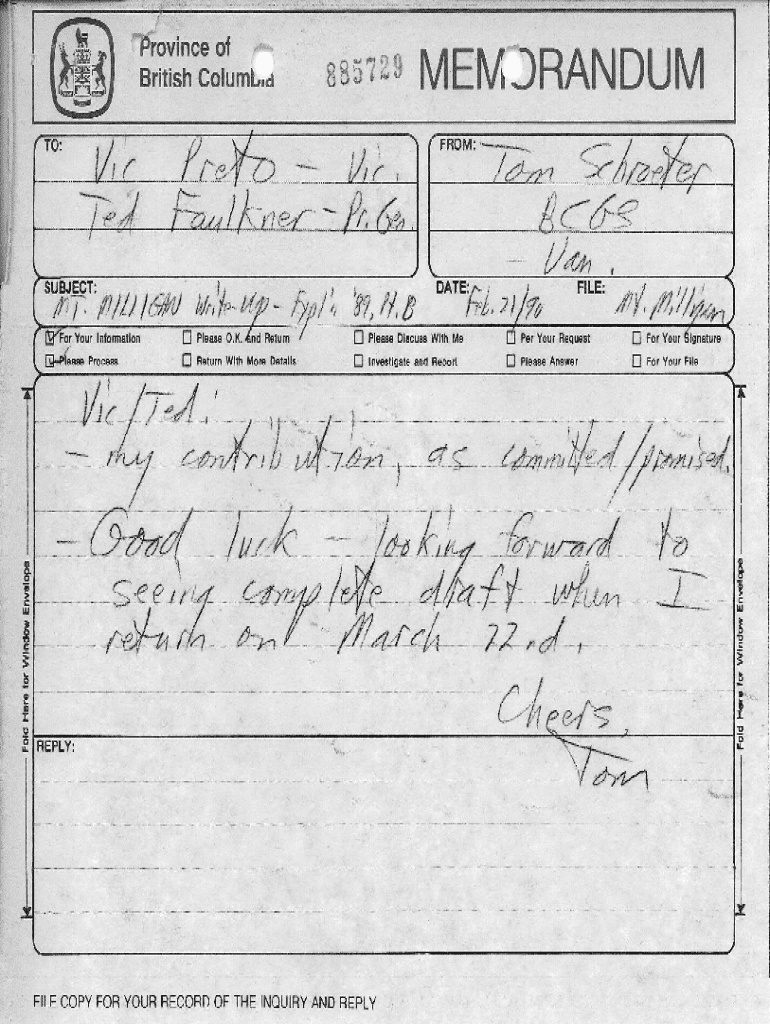 Province of
British Columbia
885729
MEMORANDUM
TO:
Vic Preto - Vic.
Ted Faulkner - Pr. Geo.
FROM:
Tom Schroeter
BCGS
Van.
SUBJECT:
MT. MILLIGAN Write-Up - Expl'n '89, N.B
DATE: Feb. 21/90
FILE: Mt. Milligan
For Your Information
Please O.K. and Return
Please Discuss With Me
Per Your Request
For Your Signature
Please Process
Return With More Details
Investigate and Report
Please Answer
For Your File
Vic/Ted:
- my contribution, as committed/promised.
- Good luck - looking forward to
seeing complete draft when I
return on March 22.d.
Cheers,
Tom
REPLY:
Fold Here for Window Envelope
Fold Here for Window Envelope
FILE COPY FOR YOUR RECORD OF THE INQUIRY AND REPLY